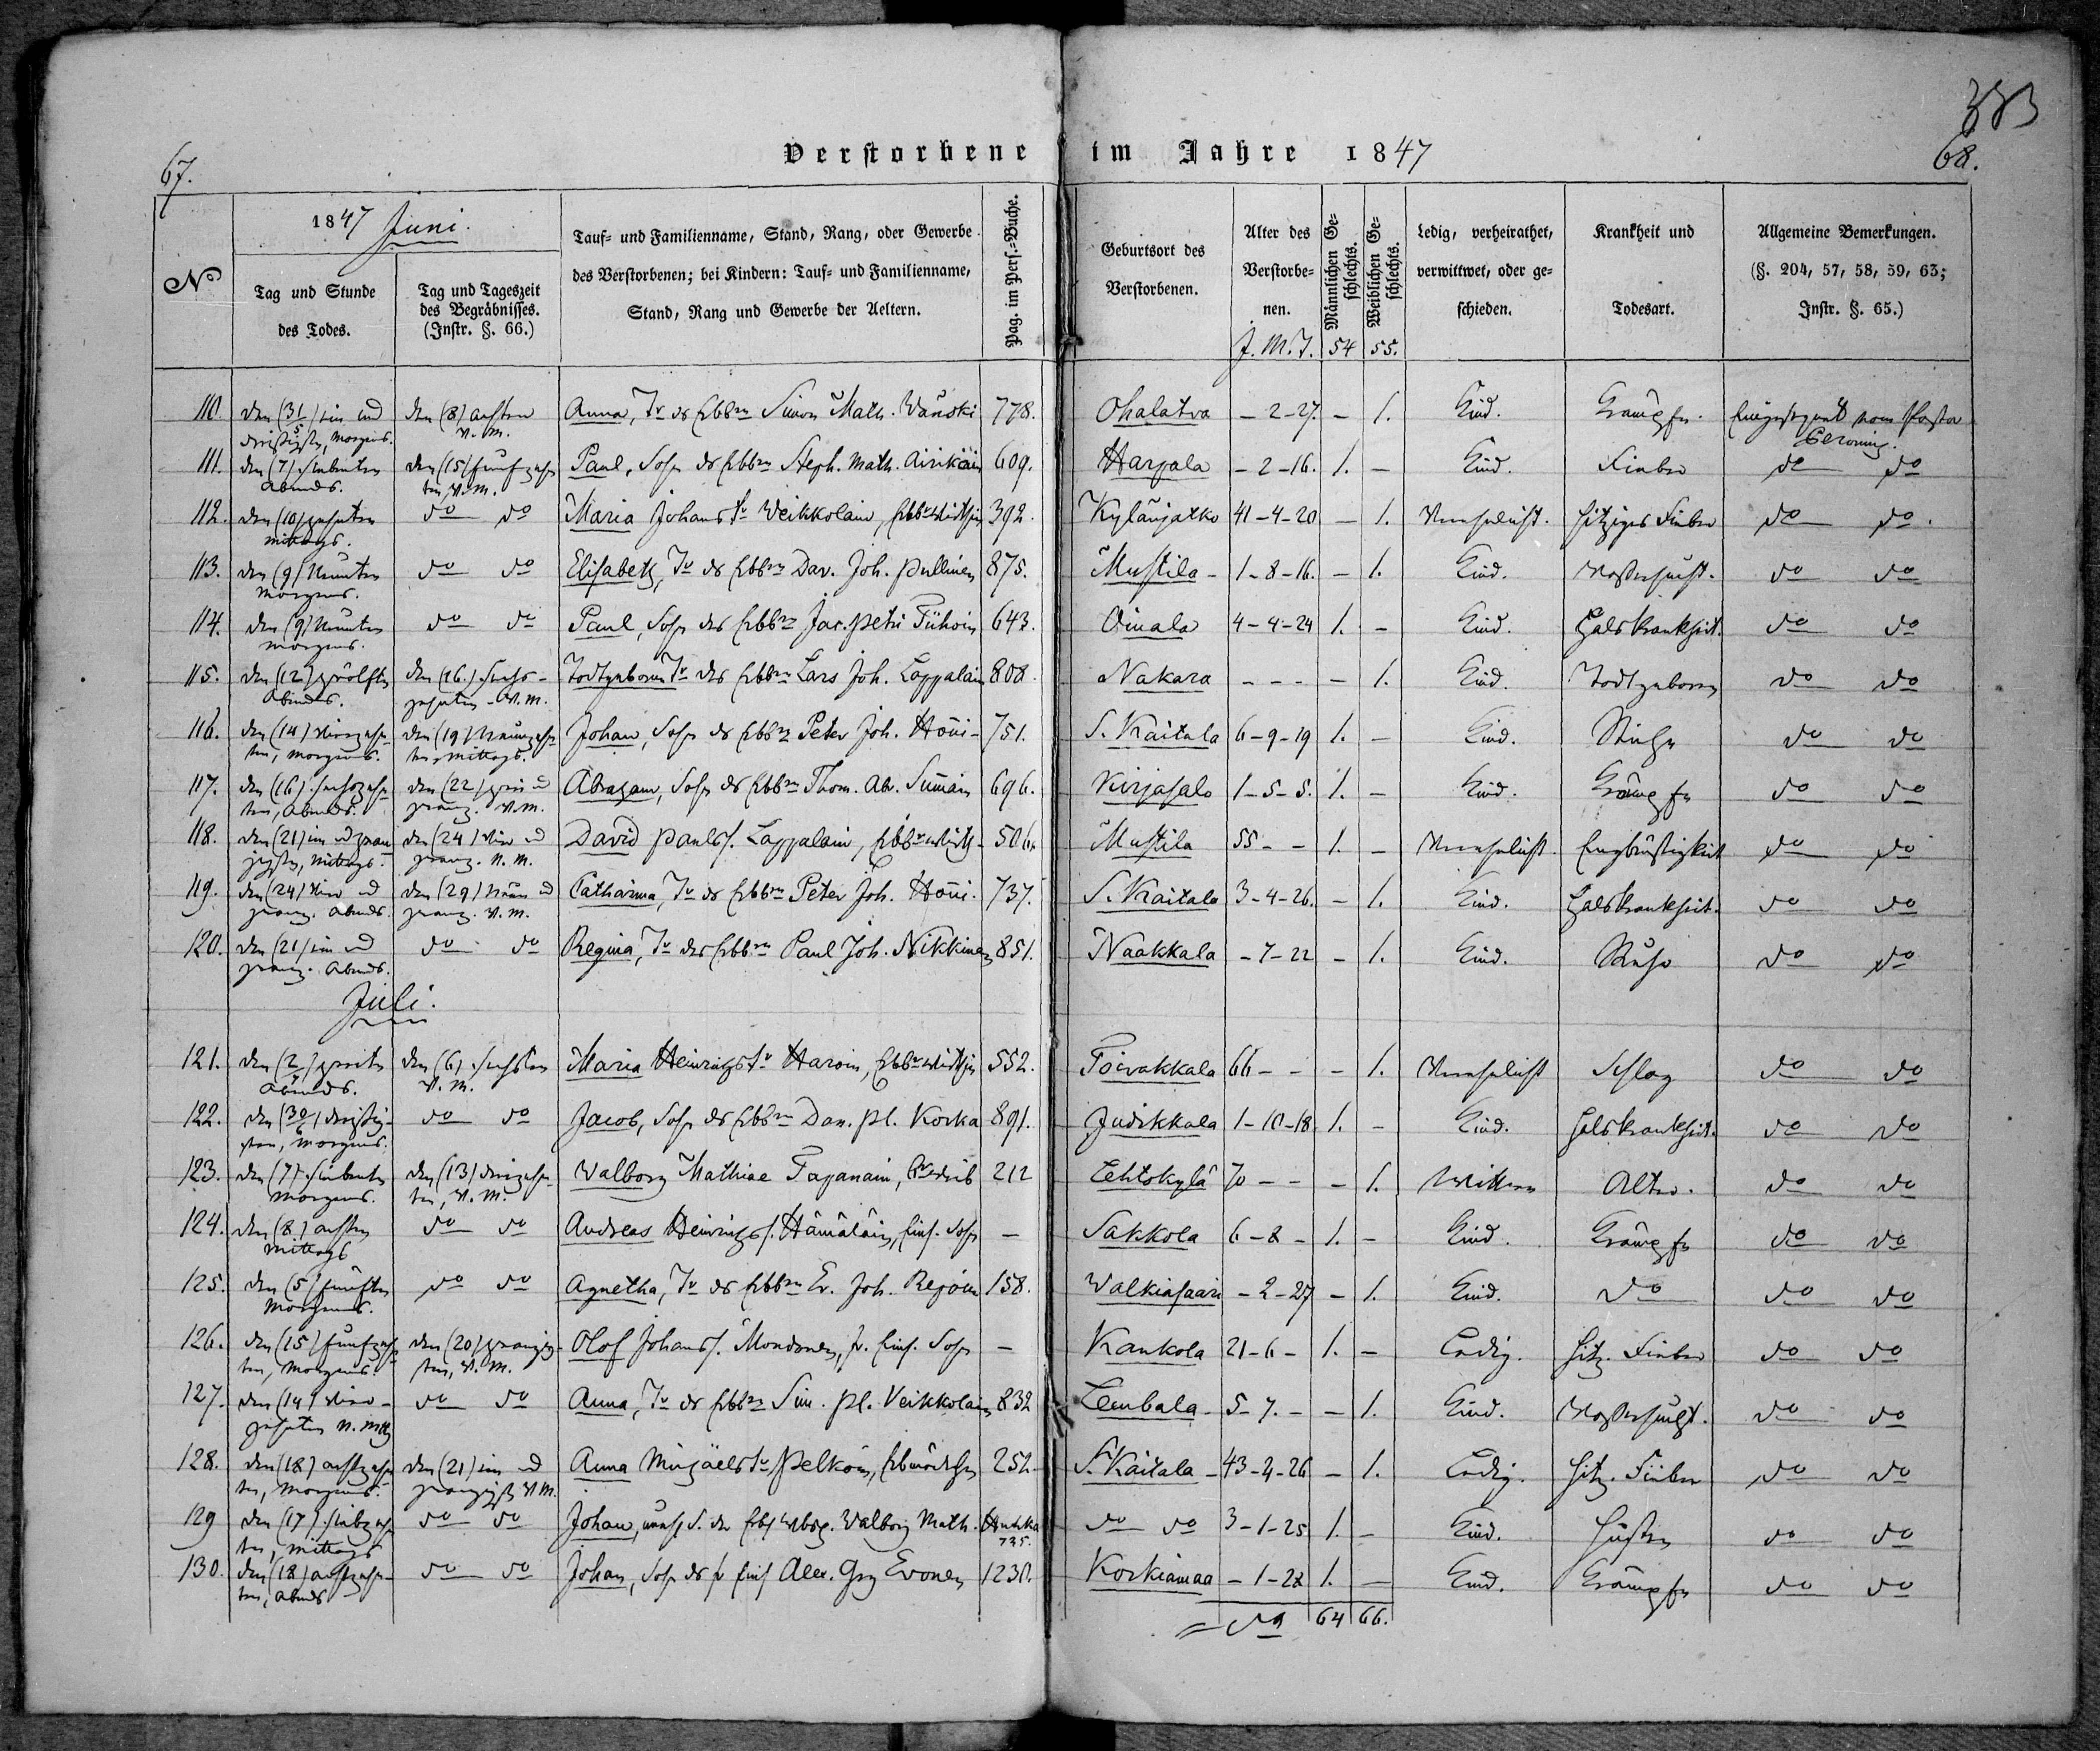 333
67.
Verstorbene im Jahre 1847
68.
No
1847 Juni.
Tag und Stunde des Todes.
Tag und Tageszeit des Begräbnisses. (Instr. §. 66.)
Tauf- und Familienname, Stand, Rang, oder Gewerbe des Verstorbenen; bei Kindern: Tauf- und Familienname, Stand, Rang und Gewerbe der Aeltern.
Pag. im Pers.-Buche.
Geburtsort des Verstorbenen.
Alter des Verstorbenen.
J. M. T.
Männlichen Geschlechts. 54
Weiblichen Geschlechts. 55.
Ledig, verheirathet, verwittwet, oder geschieden.
Krankheit und Todesart.
Allgemeine Bemerkungen. (§. 204, 57, 58, 59, 63; Instr. §. 65.)
110. den (31/5) ein und den (8) achten Anna, Tr. des Ebbrn Simon Math. Wanski 778. Ohalatva - 2 - 27. - 1. Kind. Krämpfe. Eingesegnet vom Pastor
dreißigsten, Morgens. V. M.
111. den (7) siebenten den (15) fünfzehn Paul, Sohn des Ebbrn Steph. Math. Airikäin 609. Harjala - 2 - 16. 1. - Kind. Fieber do do
Abends. ten, V. M.
112. den (10) zehnten do do Maria Johanstr Weikkolain, 392. Kylänjatko 41 - 4 - 20 - 1. Verehelicht. hitziges Fieber do do.
Mittags.
113. den (9) Neunten do do Elisabeth, Tr. des Ebbrn Dav. Joh. Pullinen 875. Mustila - 1 - 8 - 16. - 1. Kind. Wassersucht. do do
Morgens.
114. den (9) Neunten do do Paul, Sohn des Ebbrn Jac. Petri Tiihoin 643. Oinala 4 - 4 - 24 1. - Kind. Halskrankheit. do do
Morgens.
115. den (12) zwölften den (16) sechs- Todtgeborne Tr. des Ebbrn Lars Joh. Lappalain 808. Nakara - - - - 1. Kind. Todtgeboren do do
Abends. zehnten V. M.
116. den (14) vierzehn- den (19) Neunzehn- Johan, Sohn des Ebbrn Peter Joh. Honi - 751. S. Kaitala 6 - 9 - 19 1. - Kind. do do
ten, Morgens. ten, Mittags.
117. den (16) sechszehn- den (22) zwei u. Abraham, Sohn des Ebbrn Thom. Ab. Sumain 696. Kirjasalo 1 - 5 - 5. 1. - Kind. Krämpfe do do
ten, Abends. zwanz. V. M.
118. den (21) ein u. zwan den (24) vier u. David Paulss. Lappalain, 506. Mustila 55 - - 1. - Verehelicht. Engbrüstigkeit do do
zigsten, Mittags. zwanz. N. M.
119. den (24) vier u. den (29) Neun u. Catharina, Tr. des Ebbrn Peter Joh. Honi. 737. S. Kaitala 3 - 4 - 26. - 1. Kind. Halskrankheit. do do
zwanz. Abends. zwanz. V. M.
120. den (21) ein u. do do Regina, Tr. des Ebbrn Paul Joh. Nikkinen 851. Naakkala - 7 - 22 - 1. Kind. Ruhr do do
zwanz. Abends.
Juli.
121. den (2/7) zweiten den (6) sechsten Maria Heinrichstr Haroin, 552. Toivakkala 66 - - - 1. Verehelicht Schlag do do
Abends. V. M.
122. den (30/6) dreißig- do do Jacob, Sohn des Ebbrn Dan. Pl. Korka 891. Judikkala 1 - 10 - 18 1. - Kind. Halskrankheit. do do
sten, Morgens.
123. den (7) siebenten den (13) dreizehn- Walborg Mathiae Tapanain, 212 Lehtokylä 70 - - - 1. Wittwe Alter. do do
Morgens. ten, V. M.
124. den (8) achten do do Andreas Heinrichss. Hämäläin, Sohn - Sakkola 6 - 8 - 1. - Kind. Krämpfe do do
Mittags
125. den (5) fünften do do Agnetha, Tr. des Ebbrn Er. Joh. Repoin 158. Walkiasaari - 2 - 27 - 1. Kind. do do do
Morgens.
126. den (15) fünfzehn den (20) zwanzig- Olof Johanss. Mondonen, Sohn - Kankola 21 - 6 - 1. - Ledig. Hitz. Fieber do do
ten, Morgens. sten, V. M.
127. den (14) vier- do do Anna, Tr. des Ebbrn Sim. Pl. Veikkolain 832 Lembala - 5 - 7. - - 1. Kind. Wassersucht. do do
zehnten N. Mttg
128. den (18) achtzehn den (21) ein u. Anna Michaelstr Pelkoin, 252. S. Kaitala - 43 - 2 - 26 - 1. Ledig. Hitz. Fieber do do
ten, Morgens. zwanzigst V. M.
129 den (17) siebzehn do do Johan, unehl S. der Walborg Math. Huhka do do 3 - 1 - 25 1. - Kind. Husten do do
ten, Mittags 735.
130. den (18) achtzehn- do do Johan, Sohn des Alex. Grg Evonen 1230. Korkiamaa - 1 - 28 1. - Kind. Krämpfe do do
ten, Abends
64 66.